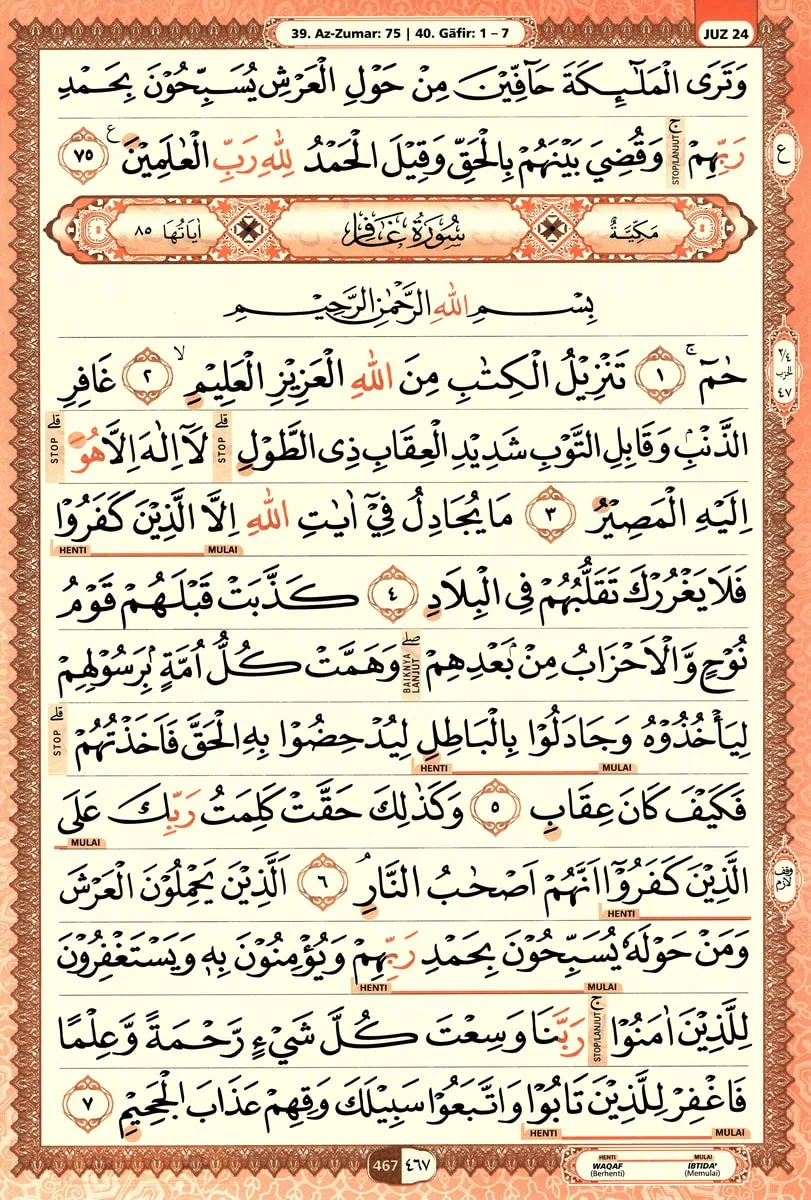 39. Az-Zumar: 75 | 40. Gāfir: 1 – 7
JUZ 24
وَتَرَى الْمَلٰۤىِٕكَةَ حَاۤفِّيْنَ مِنْ حَوْلِ الْعَرْشِ يُسَبِّحُوْنَ بِحَمْدِ
رَبِّهِمْۚ وَقُضِيَ بَيْنَهُمْ بِالْحَقِّ وَقِيْلَ الْحَمْدُ لِلّٰهِ رَبِّ الْعٰلَمِيْنَ ࣖ ٧٥
STOP/LANJUT
ع
مَكِّيَّةٌ سُوْرَةُ غَافِر اٰيَاتُهَا ٨٥
بِسْمِ اللّٰهِ الرَّحْمٰنِ الرَّحِيْمِ
٢/٤ الحزب ٤٧
حٰمۤ ۚ ١ تَنْزِيْلُ الْكِتٰبِ مِنَ اللّٰهِ الْعَزِيْزِ الْعَلِيْمِۙ ٢ غَافِرِ
الذَّنْۢبِ وَقَابِلِ التَّوْبِ شَدِيْدِ الْعِقَابِ ذِى الطَّوْلِۗ لَآ اِلٰهَ اِلَّا هُوَۗ
STOP STOP
اِلَيْهِ الْمَصِيْرُ ٣ مَا يُجَادِلُ فِيْٓ اٰيٰتِ اللّٰهِ اِلَّا الَّذِيْنَ كَفَرُوْا
HENTI MULAI
فَلَا يَغْرُرْكَ تَقَلُّبُهُمْ فِى الْبِلَادِ ٤ كَذَّبَتْ قَبْلَهُمْ قَوْمُ
نُوْحٍ وَّالْاَحْزَابُ مِنْۢ بَعْدِهِمْۖ وَهَمَّتْ كُلُّ اُمَّةٍۢ بِرَسُوْلِهِمْ
BAIKNYA LANJUT
لِيَأْخُذُوْهُ وَجَادَلُوْا بِالْبَاطِلِ لِيُدْحِضُوْا بِهِ الْحَقَّ فَاَخَذْتُهُمْۗ
STOP
HENTI MULAI
فَكَيْفَ كَانَ عِقَابِ ٥ وَكَذٰلِكَ حَقَّتْ كَلِمَتُ رَبِّكَ عَلَى
MULAI
الَّذِيْنَ كَفَرُوْٓا اَنَّهُمْ اَصْحٰبُ النَّارِۘ ٦ اَلَّذِيْنَ يَحْمِلُوْنَ الْعَرْشَ
وقف لازم
HENTI
وَمَنْ حَوْلَهٗ يُسَبِّحُوْنَ بِحَمْدِ رَبِّهِمْ وَيُؤْمِنُوْنَ بِهٖ وَيَسْتَغْفِرُوْنَ
HENTI MULAI
لِلَّذِيْنَ اٰمَنُوْاۚ رَبَّنَا وَسِعْتَ كُلَّ شَيْءٍ رَّحْمَةً وَّعِلْمًا
STOP/LANJUT
فَاغْفِرْ لِلَّذِيْنَ تَابُوْا وَاتَّبَعُوْا سَبِيْلَكَ وَقِهِمْ عَذَابَ الْجَحِيْمِ ٧
HENTI MULAI
467 ٤٦٧
HENTI MULAI
WAQAF IBTIDA'
(Berhenti) (Memulai)